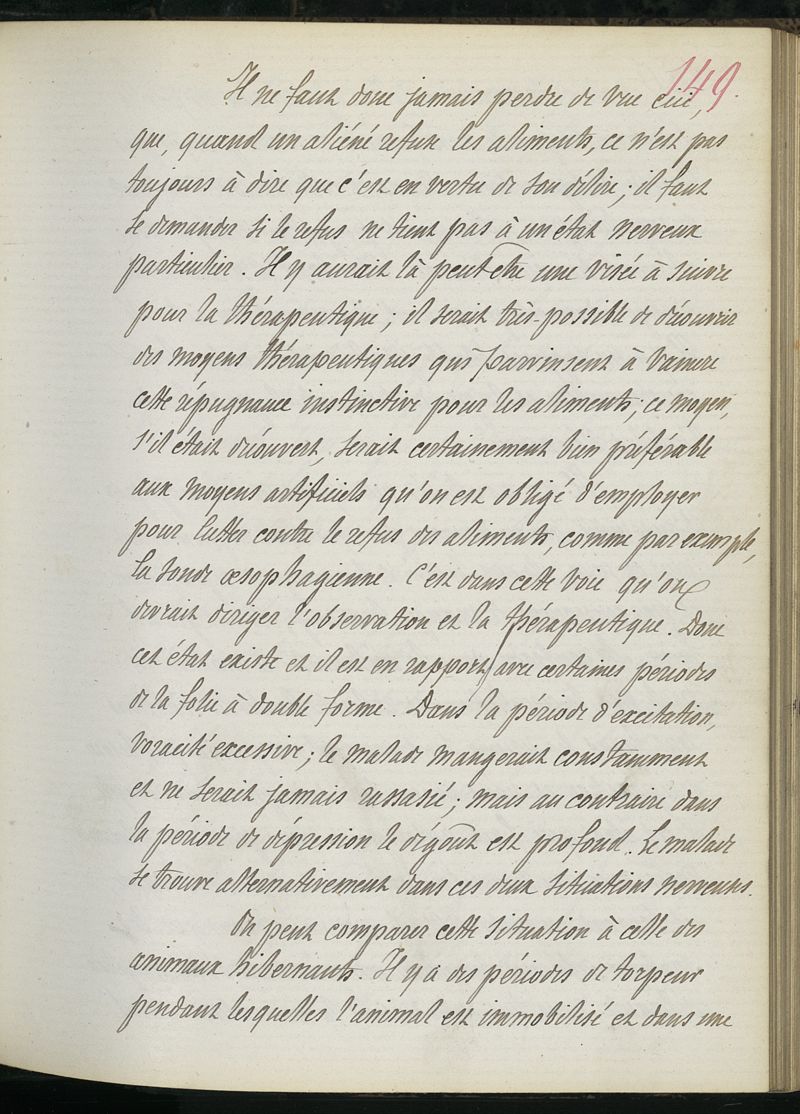 149
Il ne faut donc jamais perdre de vue ceci,
que, quand un aliéné refuse les aliments, ce n'est pas
toujours à dire que c'est en vertu de son délire ; il faut
se demander si le refus ne tient pas à un état nerveux
particulier. Il y aurait là peut être une visée à suivre
pour la thérapeutique ; il serait très-possible de découvrir
des moyens thérapeutiques qui parvinssent à vaincre
cette répugnance instinctive pour les aliments ; ce moyen,
s'il était découvert, serait certainement bien préférable
aux moyens artificiels qu'on est obligé d'employer
pour lutter contre le refus des aliments, comme par exemple,
la sonde œsophagienne. C'est dans cette voie qu'on
devrait diriger l'observation et la thérapeutique. Donc
cet état existe et il est en rapport avec certaines périodes
de la folie à double forme. Dans la période d'excitation,
voracité excessive ; le malade mangerait constamment
et ne serait jamais rassasié ; mais au contraire dans
la période de dépression le dégoût est profond. Le malade
se trouve alternativement dans ces deux situations nerveuses.
On peut comparer cette situation à celle des
animaux hibernants. Il y a des périodes de torpeur
pendant lesquelles l'animal est immobilisé et dans une